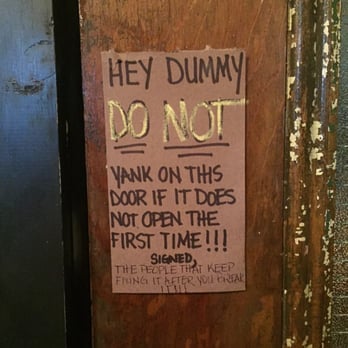 HEY DUMMY
DO NOT
YANK ON THIS
DOOR IF IT DOES
NOT OPEN THE
FIRST TIME!!!
SIGNED,
THE PEOPLE THAT KEEP
FIXING IT AFTER YOU BREAK
IT!!!!